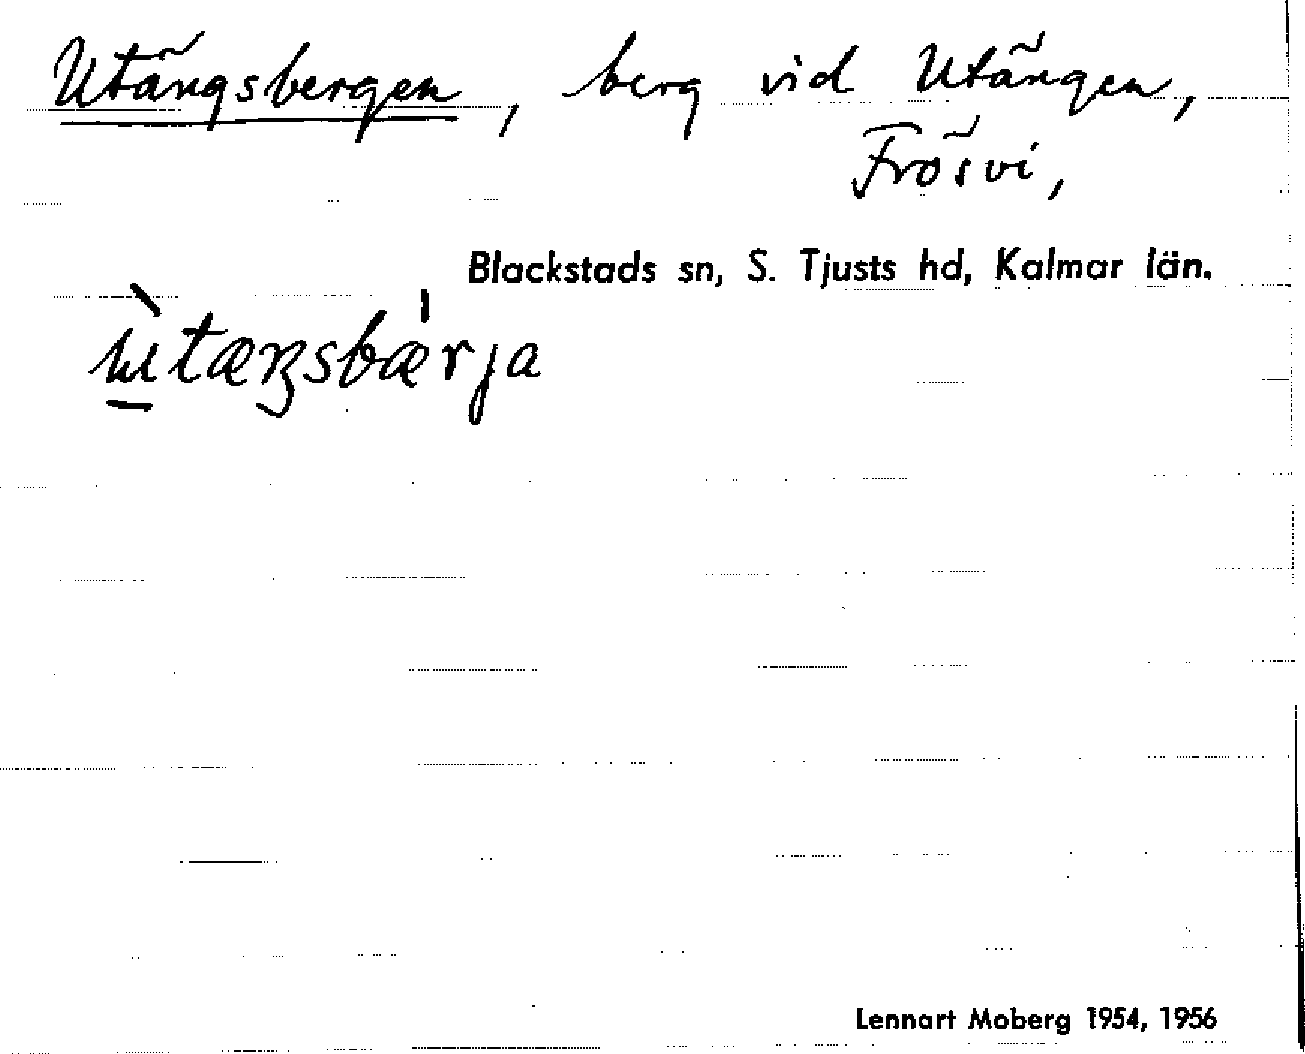 Utängsbergen, berg vid Utängen,
Frösvi,
Blackstads sn, S. Tjusts hd, Kalmar län.
ùtæŋsbæ̍rja
Lennart Moberg 1954, 1956